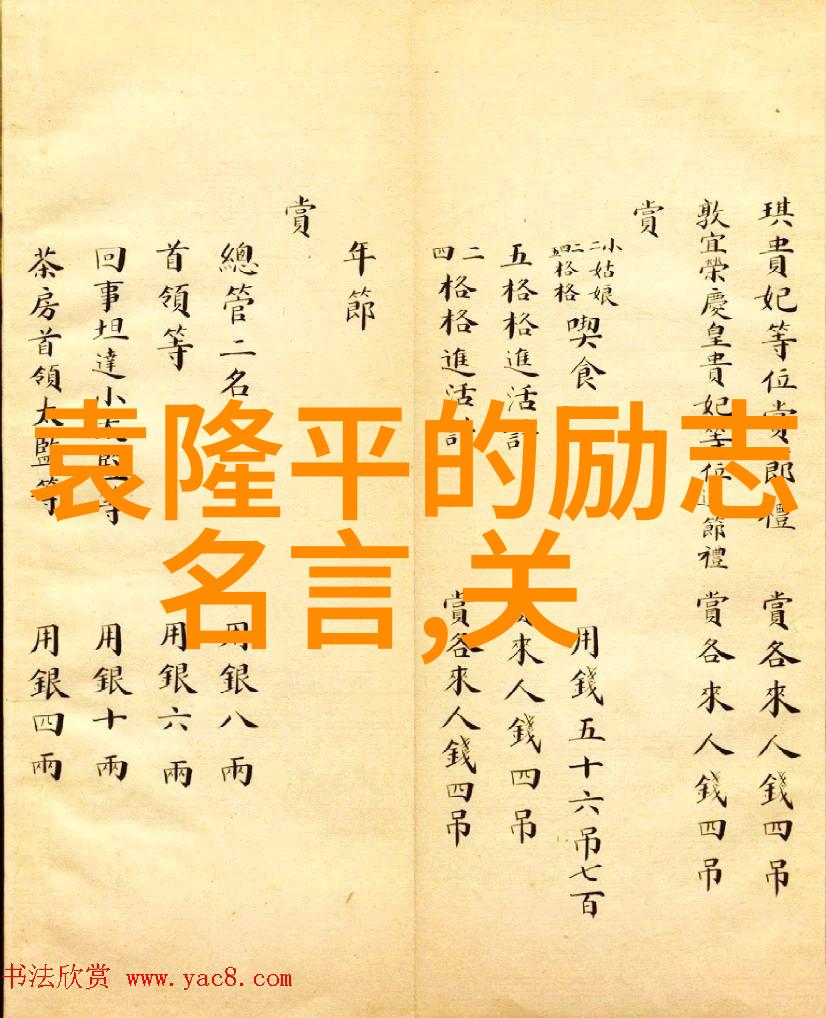 琪貴妃等位賞節禮 賞各來人錢四吊
敦宜榮慶皇貴妃等位進節禮 賞各來人錢四吊
賞
小姑娘
格格
喫食 用錢五十六吊七百
五格格進活計 來人錢四吊
二四格格進活計 賞各來人錢四吊
年節
賞
總管二名 用銀八兩
首領等 用銀六兩
回事坦達小太監等 用銀十兩
茶房首領太監等 用銀四兩
袁隆平的励志
名言,关
书法欣赏 www.yac8.com